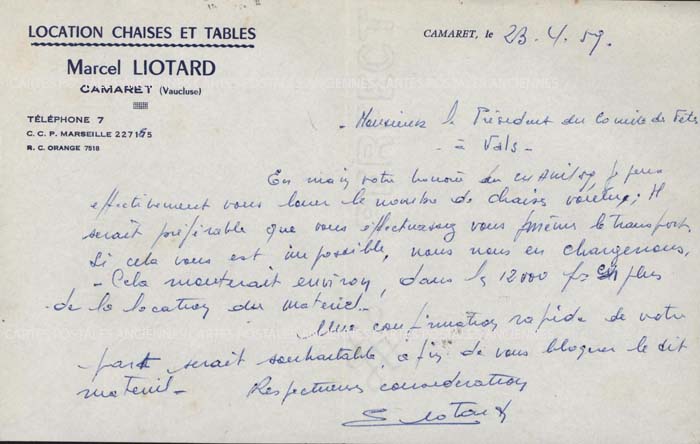 LOCATION CHAISES ET TABLES
Marcel LIOTARD
CAMARET (Vaucluse)
TÉLÉPHONE 7
C. C. P. MARSEILLE 227155
R. C. ORANGE 7518
CAMARET, le 23.4.59.
- Monsieur le Président du Comité des Fêtes
- à Vals -
En main votre honorée du Avril je peux
effectivement vous louer le nombre de chaises voulue; Il
serait préférable que vous effectuassiez vous même le transport,
Si cela vous est impossible, nous nous en chargerons,
- Cela monterait environ, dans les 12000 frs en plus
de la location du matériel.
Une confirmation rapide de votre
part serait souhaitable, afin de vous bloquer le dit
matériel - Respectueuses considérations